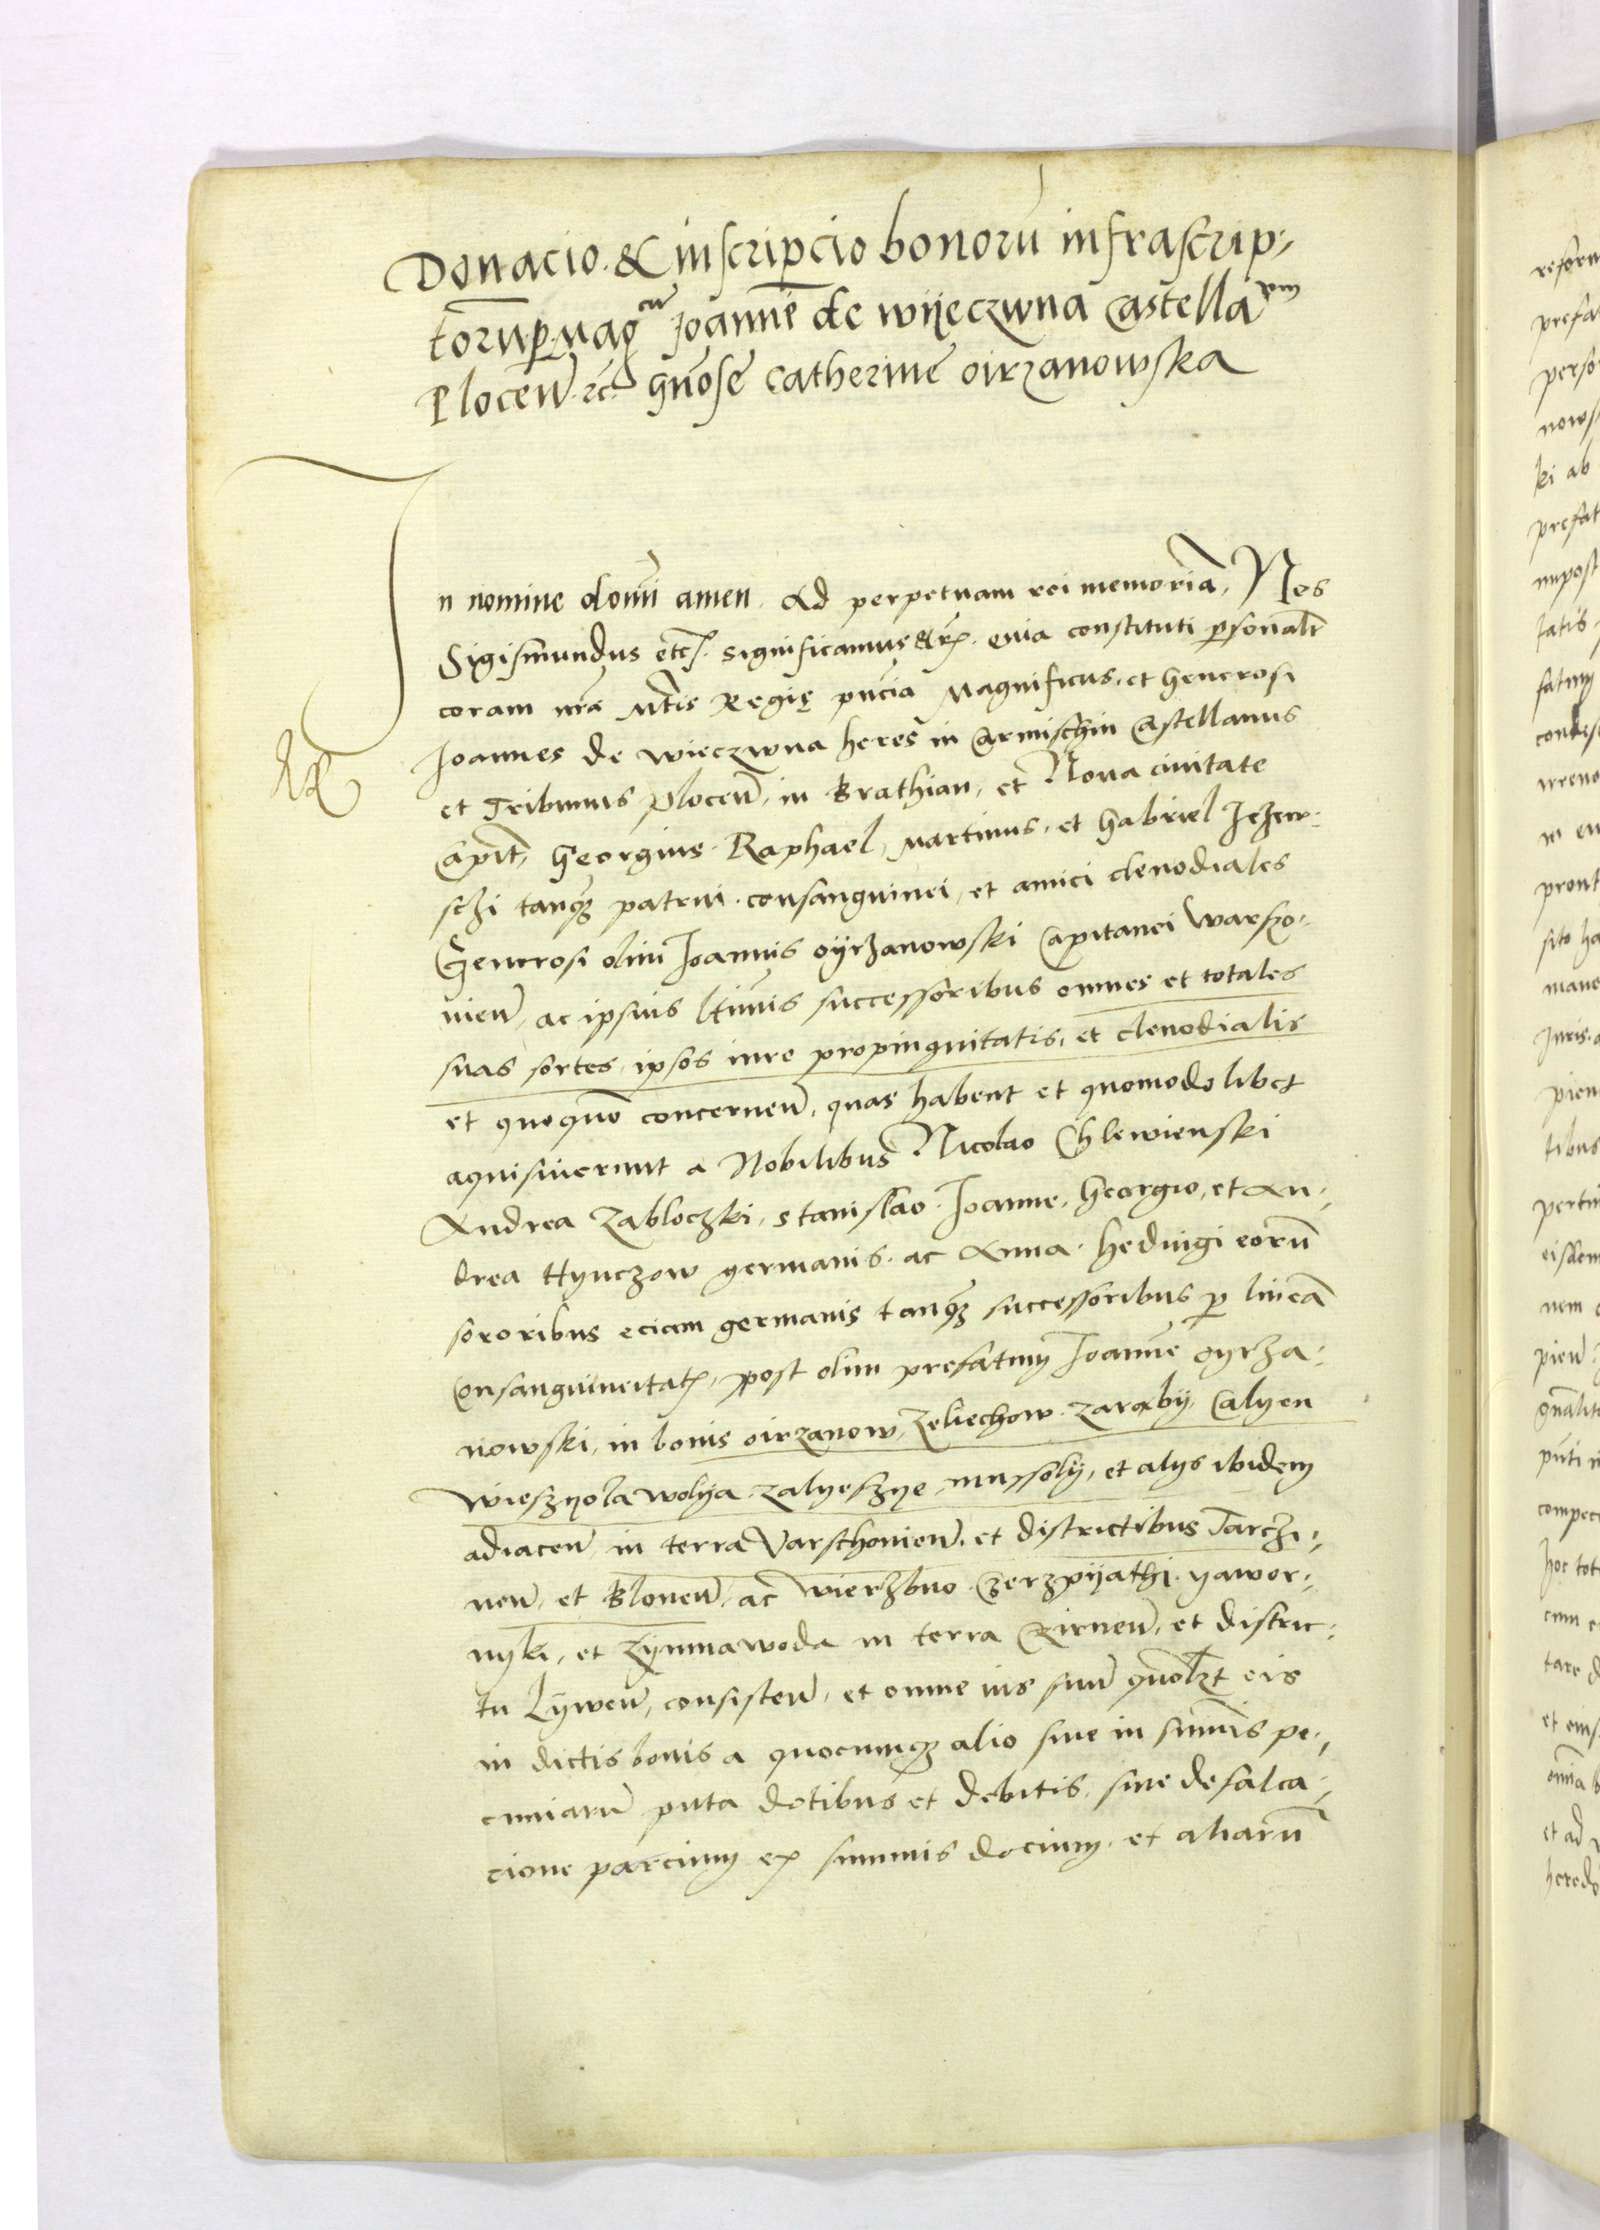 Donacio & inscripcio bonorū infrascrip,
torū p Magcū Joannē de wijeczwna Castellānū
Plocen̄ etc gn̄ose Catherine oirzanowska
In nomine domini amen. Ad perpetuam rei memoriā, Nos
Sigismundus etc. significamus etc. quia constituti p̄sonalr̄
coram nr̄a Mtis Regię pn̄cia Magnificus, et Generosi
Joannes de wieczwna heres in Carnischin Castellanus
et Tribunus plocen̄, in Brathian, et Noua ciuitate
Capit̄, Georgius Raphael, Martinus, et Gabriel
tanq̄ patrui consanguinei, et amici clenodiales
Generosi olim Joannis oyrzanowski Capitanei warszo,
uien̄, ac ipsius ltīmis successoribus omnes et totales
suas sortes, ipsos iure propinquitatis, et clenodialis
et quoquo concernen̄, quas habent et quomodolibet
aquisiuerunt a Nobilibus Nicolao Chlewienski
Andrea Zabloczki, Stanislao Joanne, Georgio, et An,
drea Hynczow germanis, ac Anna, Heduigi eorū
sororibus eciam germanis tanq̄ successoribus p lineā
Consanguineitatis, post olim prefatum Joannē oyrza,
nowski, in bonis oirzanow, Zeliechow, Zaraby, Calyen
wieszyola wolya, zalyeszye, mussoly, et alys ibidem
adiacen̄ in terra Varschouien̄, et districtibus Tarczi,
nen̄, et Blonen̄, ac wierzbno Czerzpijathi, yawor,
nyki, et Zymnawoda in terra Czirnen̄, et distric,
tu Lywen̄, consisten̄, et omne ius suū quodlzt eis
in dictis bonis a quocunq̄ alio siue in sum̄is pe,
cuniarū puta dotibus et debitis, siue defalca,
cione parcium ex summis docium, et aliarū